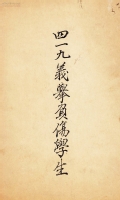 四一九義擧負傷學生